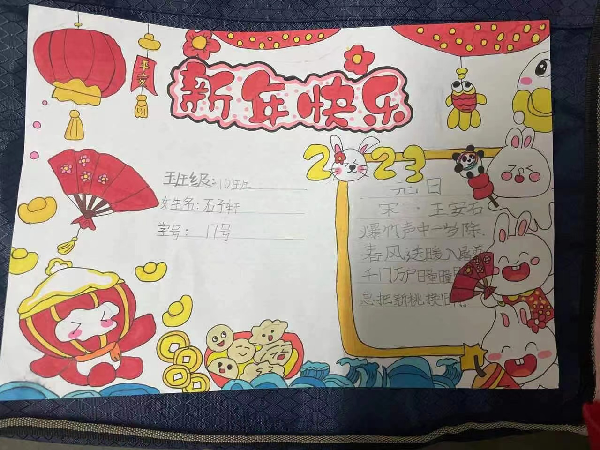 新年快乐
平安
2023
班级：10班
女生名：孟子轩
学号：11号
元日
宋·王安石
爆竹声中一岁除
春风送暖入屠
千门万户曈曈
总把新桃换旧